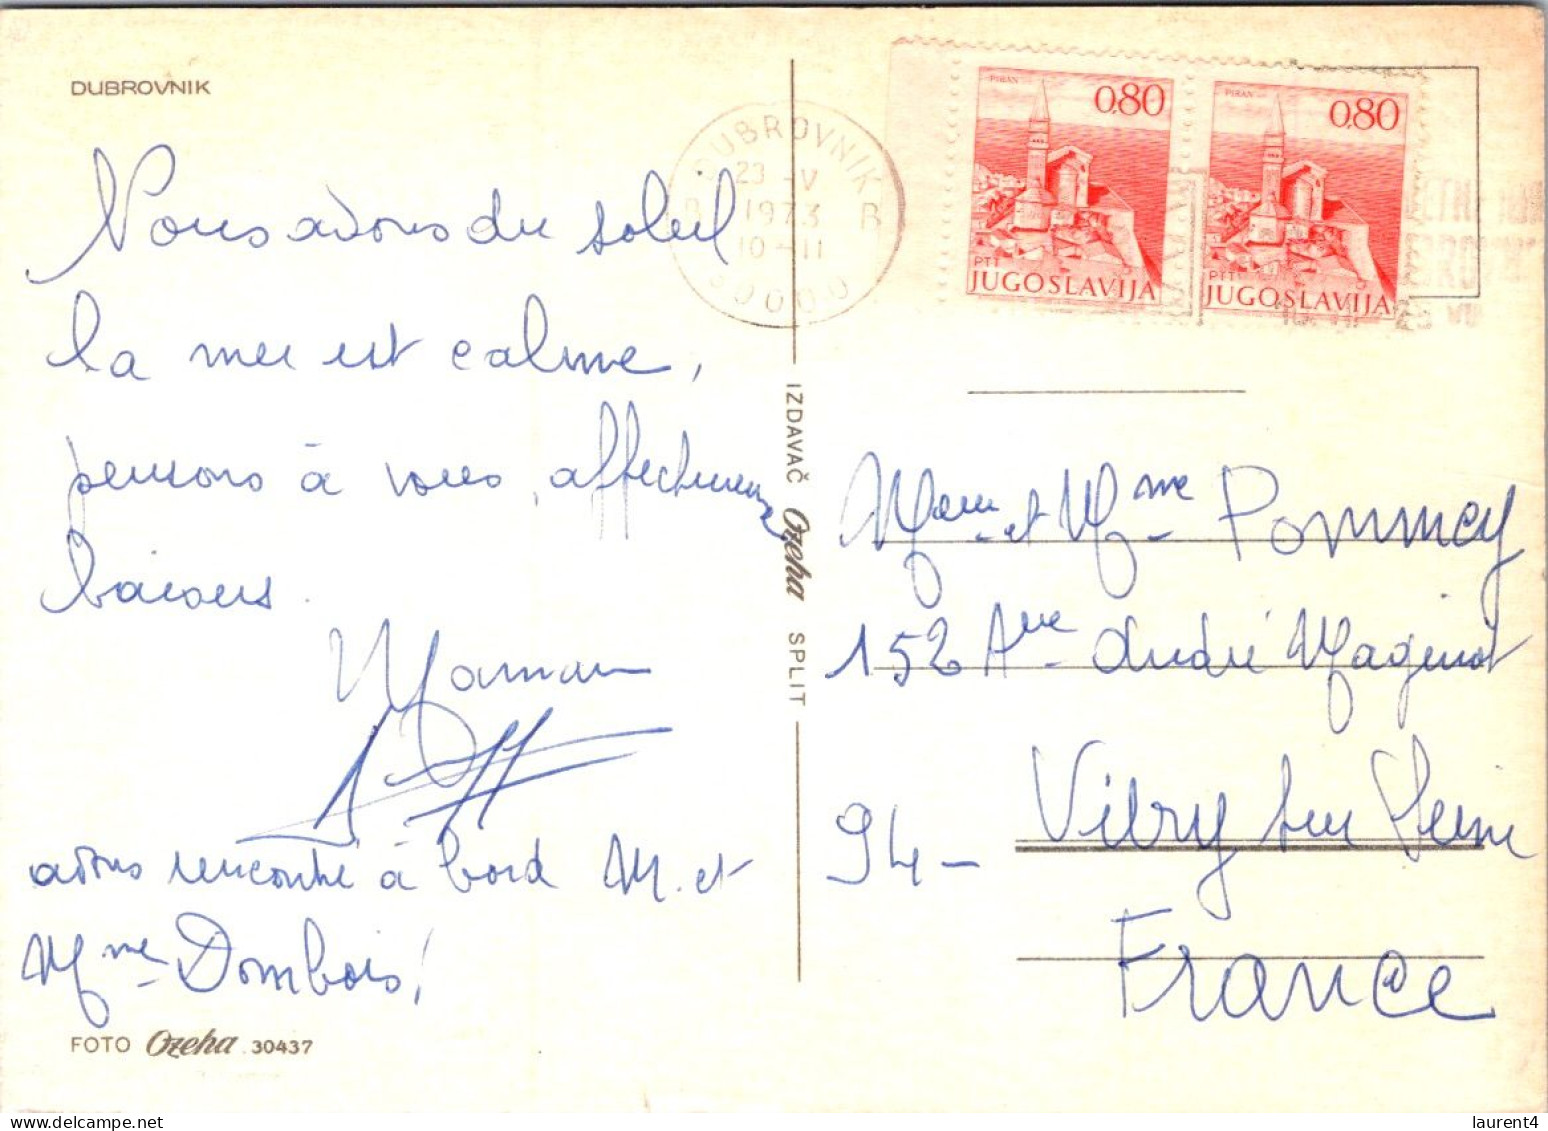 DUBROVNIK
Nous avons du soleil
la mer est calme,
pensons à vous, affectueux
baisers.
Maman
avons rencontré à bord M. et
Mme Dombois!
FOTO Ozeha 30437
IZDAVAČ Ozeha SPLIT
DUBROVNIK
23 -V
1973
10-11
B B
50000
PIRAN
0,80
PTT
JUGOSLAVIJA
PIRAN
0,80
PTT
JUGOSLAVIJA
et Mme Pommey
152 Ave André Maginot
94- Vitry sur Seine
France
laurent4